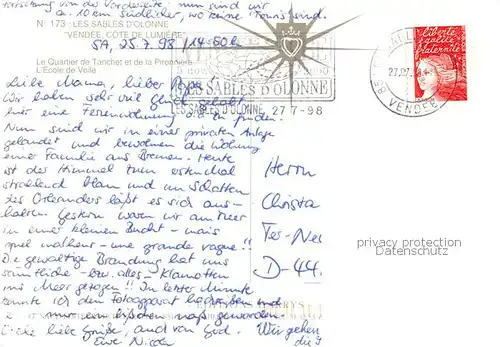 Fortsetzung von der Vorderseite: nun sind wir
ca. 10 km südlicher, wo keine Touris sind.
N° 173 : LES SABLES D'OLONNE
"VENDÉE, CÔTE DE LUMIÈRE"
SA, 25.7.98 / 14.50 h
Le Quartier de Tanchet et de la
L'Ecole de Voile
Liebe Mama, lieber Papa!
Wir haben sehr viel Glück gehabt
hier eine Ferienwohnung zu finden.
Nun sind wir in einer privaten Anlage
gelandet und bewohnen die Wohnung
einer Familie aus Bremen. Heute
ist der Himmel zum ersten Mal
strahlend blau und im Schatten
des Oleanders läßt es sich aus-
halten. Gestern waren wir am Meer
in einer kleinen Bucht - mais
quel malheur - une grande vague!!
Die gewaltige Brandung hat uns
sämtliche - bzw. alles - Klamotten
ins Meer gezogen!! In letzter Minute
konnte ich den Fotoapparat hochreißen und
nur ein bißchen naß geworden.
Viele liebe Grüße, auch von
Eure Nicole
Wir gehen
LES SABLES D'OLONNE
LES SABLES D'OLONNE 27 7-98
VENDEE
liberté
égalité
fraternité
Herrn
Christa
D-44
privacy protection
Datenschutz